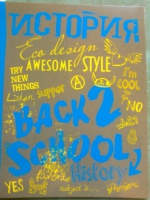 ИСТОРИЯ
Eco design
TRY AWESOME STYLE
NEW
THINGS
I'm
COOL
Listen, support
BACK 2
TO NO
SCHOOL
History
YES
subject